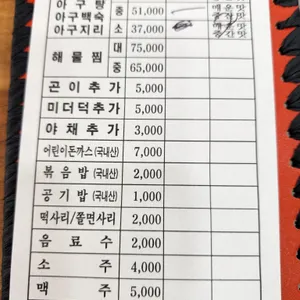 아구탕 중 51,000 매운맛
아구백숙 중간맛
아구지리 소 37,000 매운맛
중간맛
해물찜 대 75,000
중 65,000
곤이추가 5,000
미더덕추가 5,000
야채추가 3,000
어린이돈까스(국내산) 7,000
볶음밥(국내산) 2,000
공기밥(국내산) 1,000
떡사리/쫄면사리 2,000
음료수 2,000
소주 4,000
맥주 5,000